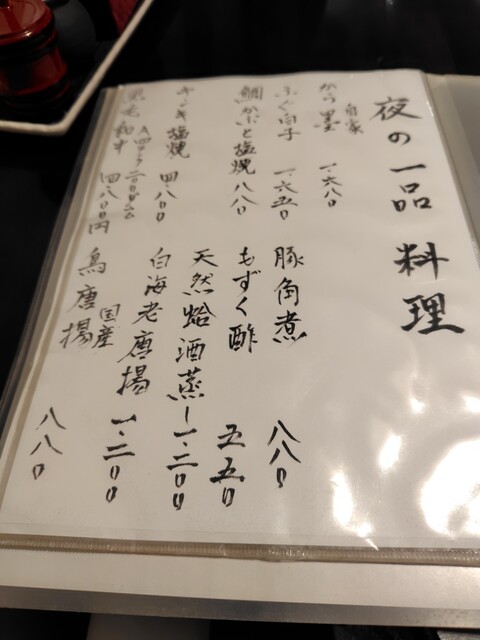 夜の一品料理
自家
から墨 一、六八〇
ふぐ白子 一、六五〇
鯛かぶと塩焼 八八〇
キンキ塩焼 四、八〇〇
黒毛和牛 A4ランク 二〇〇グラム 四、八〇〇円
豚角煮 八八〇
もずく酢 五五〇
天然蛤酒蒸し 一、二〇〇
白海老唐揚 一、二〇〇
国産
鳥唐揚 八八〇